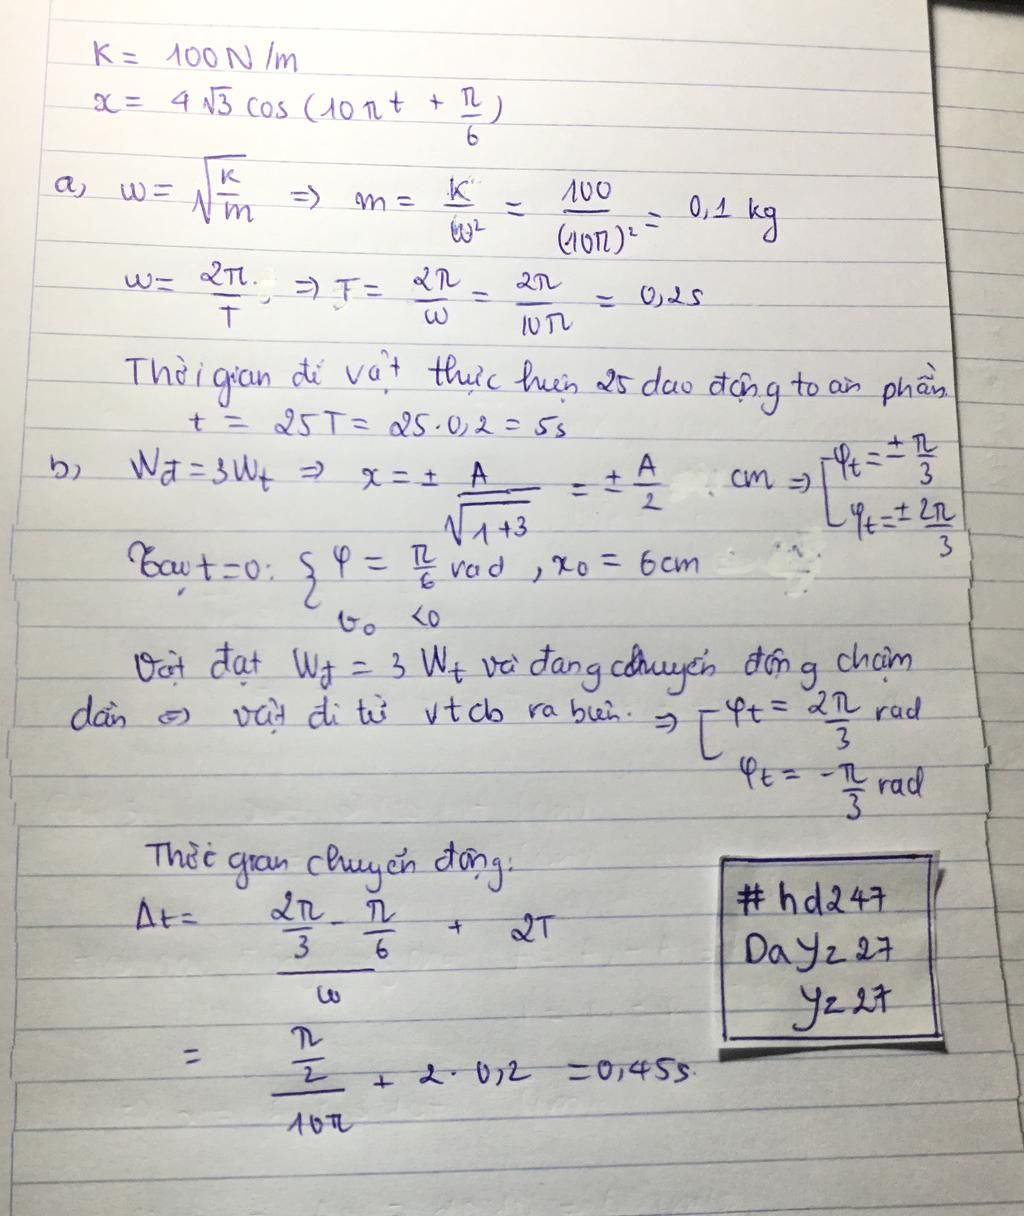 K = 100 N/m
x = 4√3 cos (10πt + π/6)
a, ω = √(K/m) => m = K/ω² = 100/(10π)² = 0,1 kg
ω = 2π/T => T = 2π/ω = 2π/10π = 0,2s
Thời gian để vật thực hiện 25 dao động toàn phần
t = 25T = 25.0,2 = 5s
b, Wđ = 3Wt => x = ± A/√(1+3) = ± A/2 cm => [ φt = ± π/3
φt = ± 2π/3
Tại t=0: { φ = π/6 rad, x0 = 6cm
v0 <0
Vật đạt Wđ = 3 Wt và đang chuyển động chậm
dần <=> vật đi từ vtcb ra biên. => [ φt = 2π/3 rad
φt = -π/3 rad
Thời gian chuyển động:
Δt = (2π/3 - π/6)/ω + 2T
= (π/2)/10π + 2.0,2 = 0,45s
#hd247
DaYz27
Yz27